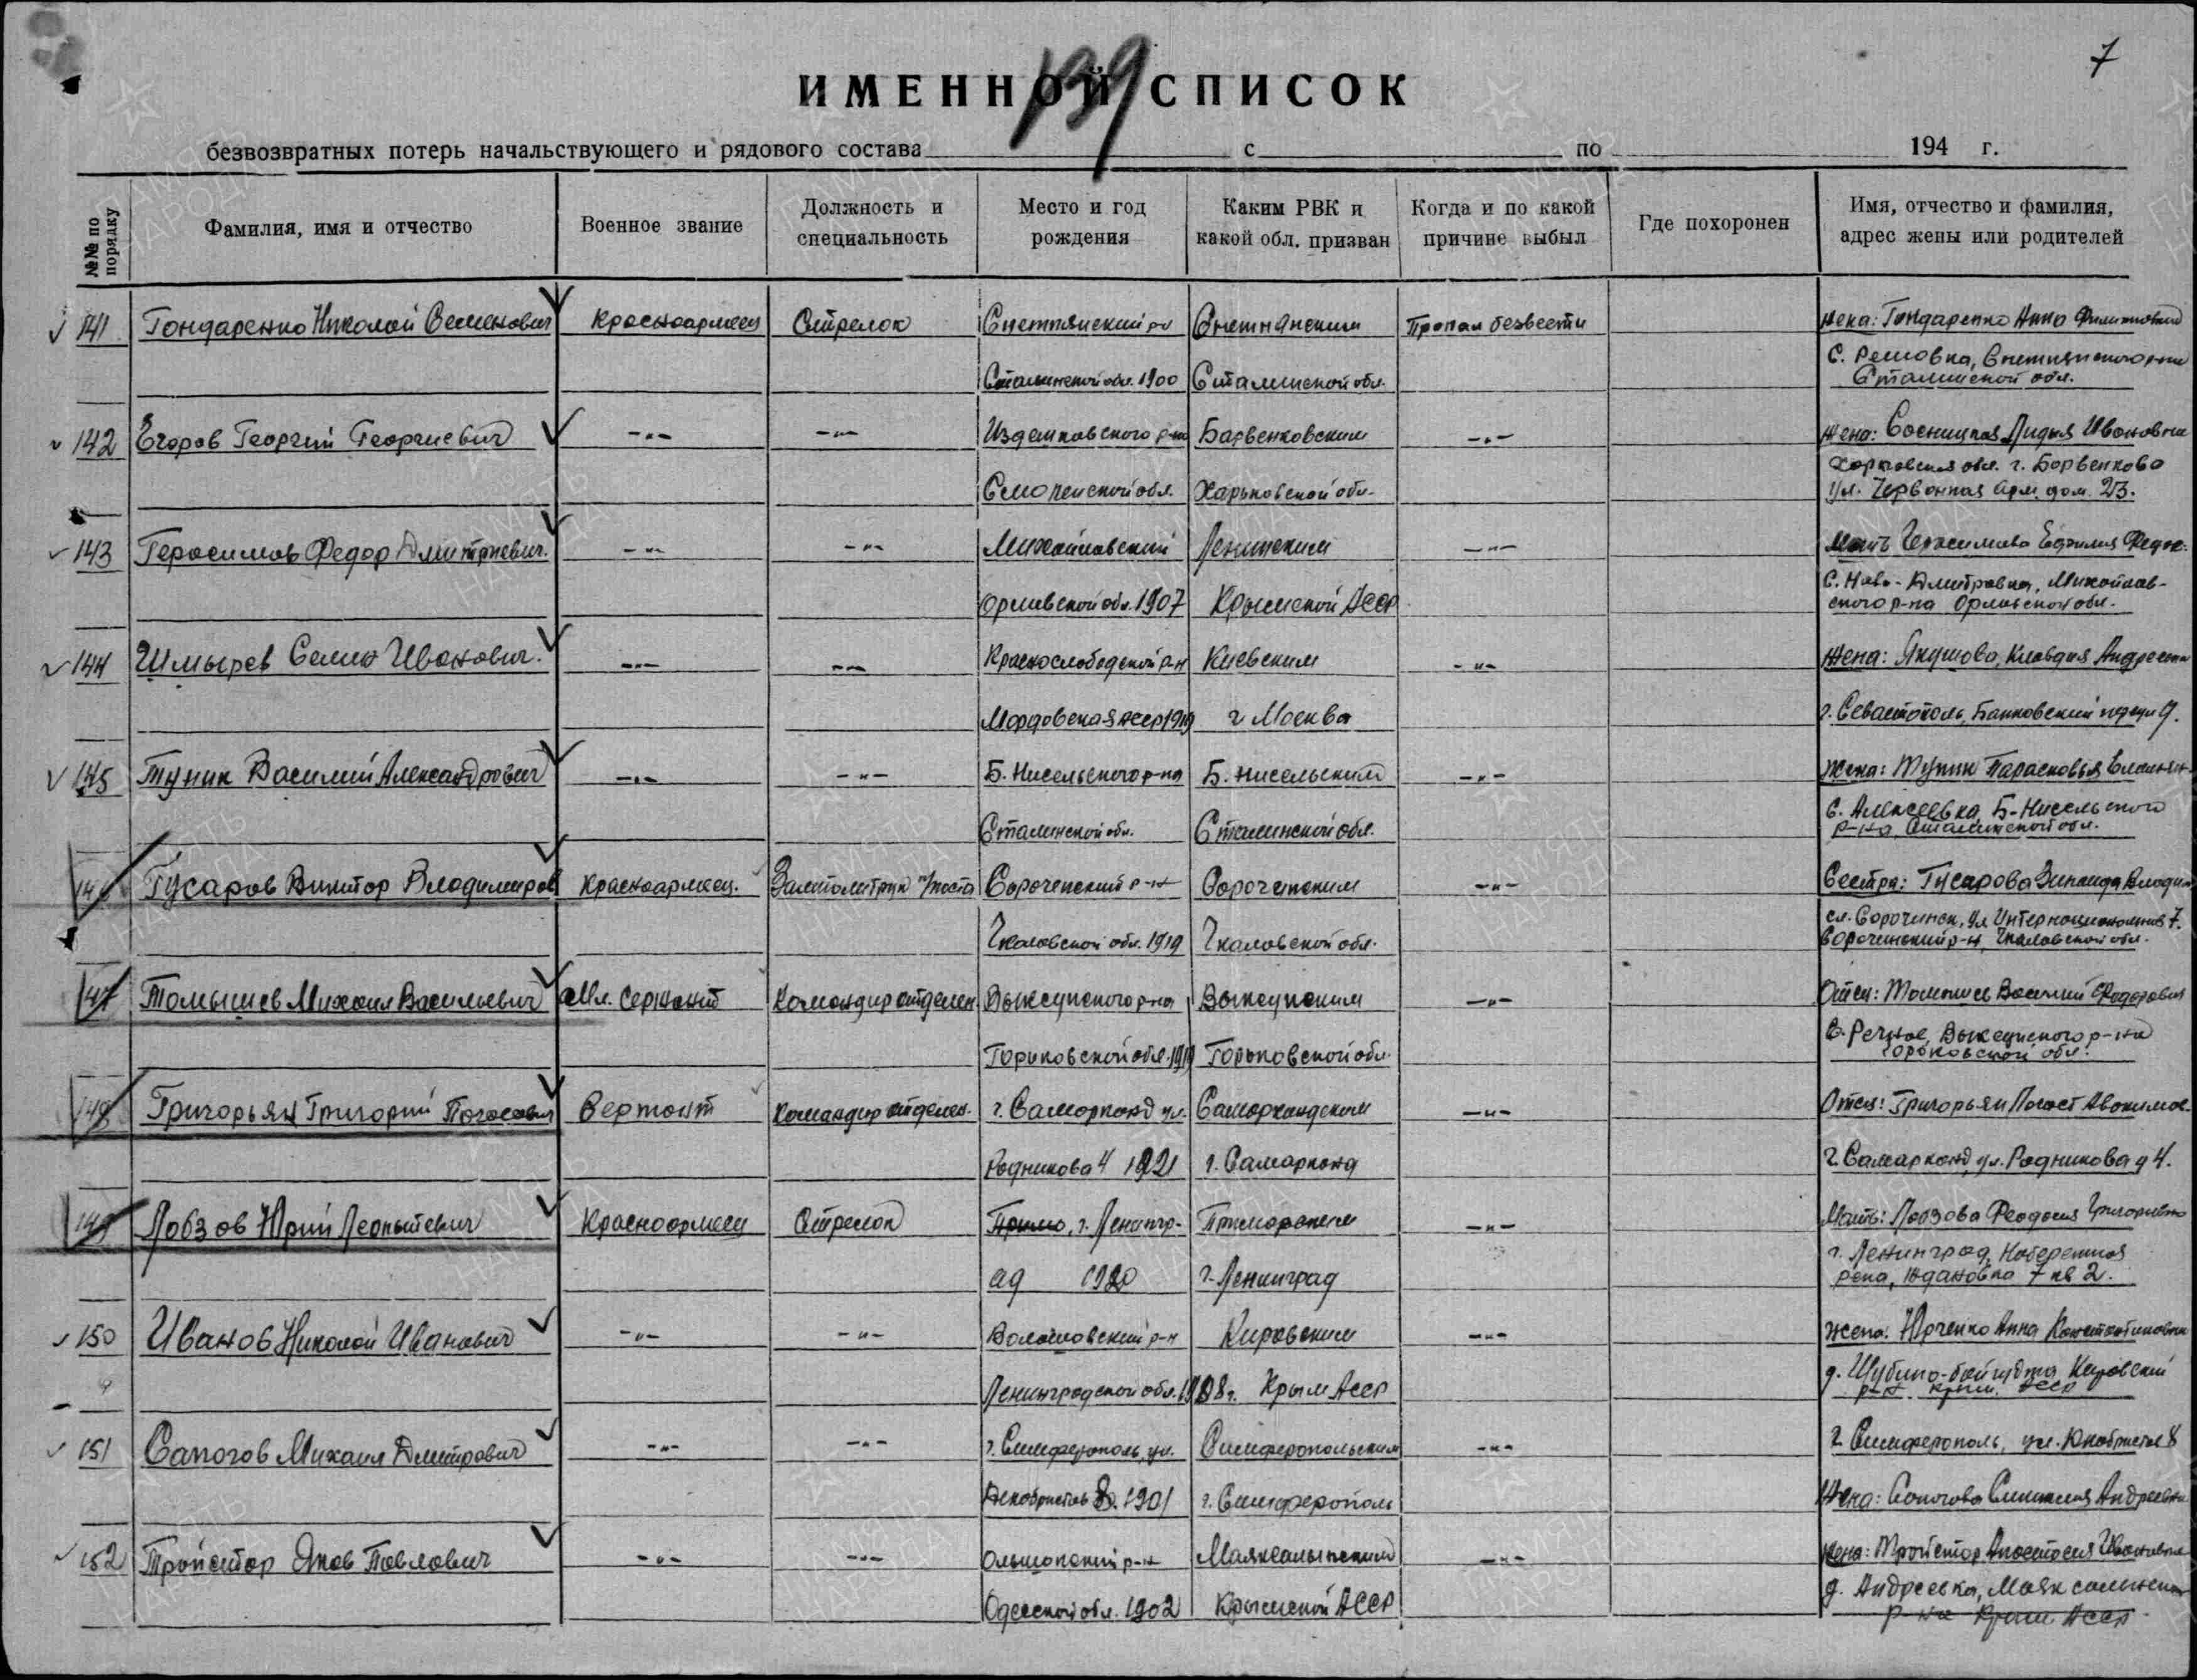 7
139
ИМЕННОЙ СПИСОК
безвозвратных потерь начальствующего и рядового состава с по 194 г.
№№ по порядку
Фамилия, имя и отчество
Военное звание
Должность и специальность
Место и год рождения
Каким РВК и какой обл. призван
Когда и по какой причине выбыл
Где похоронен
Имя, отчество и фамилия, адрес жены или родителей
141 Гондаренко Николай Семенович Красноармеец Стрелок Снетнянский р-н Снетнянским Пропал безвести жена: Гондаренко Анна
Сталинской обл. 1900 Сталинской обл. С. Ремовка, Снетнянского р-на
Сталинской обл.
142 Егоров Георгий Георгиевич -"- -"- Издешковского р-на Барвенковским -"- жена: Сосницкая Лидия Ивановна
Смоленской обл. Харьковской обл. Харьковская обл. г. Борвенково
ул. Червонная Арм. дом. 23.
143 Герасимов Федор Дмитриевич. -"- -"- Михайловский Ленинским -"- Мать Герасимова Ефимия Федор.
Орловской обл. 1907 Крымской АССР С. Ново-Дмитровка, Михайловского р-на Орловской обл.
144 Шмырев Семен Иванович. -"- -"- Краснослободский р-н Киевским -"- Жена: Якушова, Клавдия Андреевна
Мордовская АССР 1919 г. Москва г. Севастополь, Банковский переул 9.
145 Тупик Василий Александрович -"- -"- Б. Нисельского р-на Б. Нисельским -"- Жена: Тупик Парасковья
Сталинской обл. Сталинской обл. С. Алексеевка, Б-Нисельского
р-на Сталинской обл.
146 Гусаров Виктор Владимиров Красноармеец. Замполитрук Сороченский р-н Сороченским -"- Сестра: Гусарова Зинаида Владим
Чкаловской обл. 1919 Чкаловской обл. ст. Сорочинск, ул Интернационалная 7.
Сорочинский р-н, Чкаловской обл.
147 Томышев Михаил Васильевич Мл. Сержант Командир отделен. Выксунского р-на Выксунским -"- Отец: Томышев Василий Федорович
Горьковской обл. 1919 Горьковской обл. С. Речное, Выксунского р-на
Горьковской обл.
148 Григорьян Григорий Погосович Сержант Командир отделен. г. Самарканд ул. Самаркандским -"- Отец: Григорьян Погост
Родникова 4 1921 г. Самарканд г. Самарканд, ул. Родникова д 4.
149 Лобзов Юрий Леонтьевич Красноармеец Стрелок г. Ленингр- Приморским -"- Мать: Лобзова Феодосия Григорьевна
ад 1920 г. Ленинград г. Ленинград, Набережная
река, Ждановка 7 кв 2.
150 Иванов Николай Иванович -"- -"- Волосовский р-н Кировским -"- жена: Юрченко Анна Константиновна
Ленинградской обл. 1908 г. Крым АССР Кировский
р-н Крым. АССР
151 Сапогов Михаил Дмитрович -"- -"- г. Симферополь, ул. Симферопольским -"- г. Симферополь, ул. 8
Декабристов 8. 1901 г. Симферополь Жена: Сапогова Андреевна
152 Тройстор Яков Павлович -"- -"- Ольшанский р-н Маяксалынским -"- жена: Тройстор Анастасия Ивановна
Одесской обл. 1902 Крымской АССР д. Андреевка,
р-на Крым. АССР